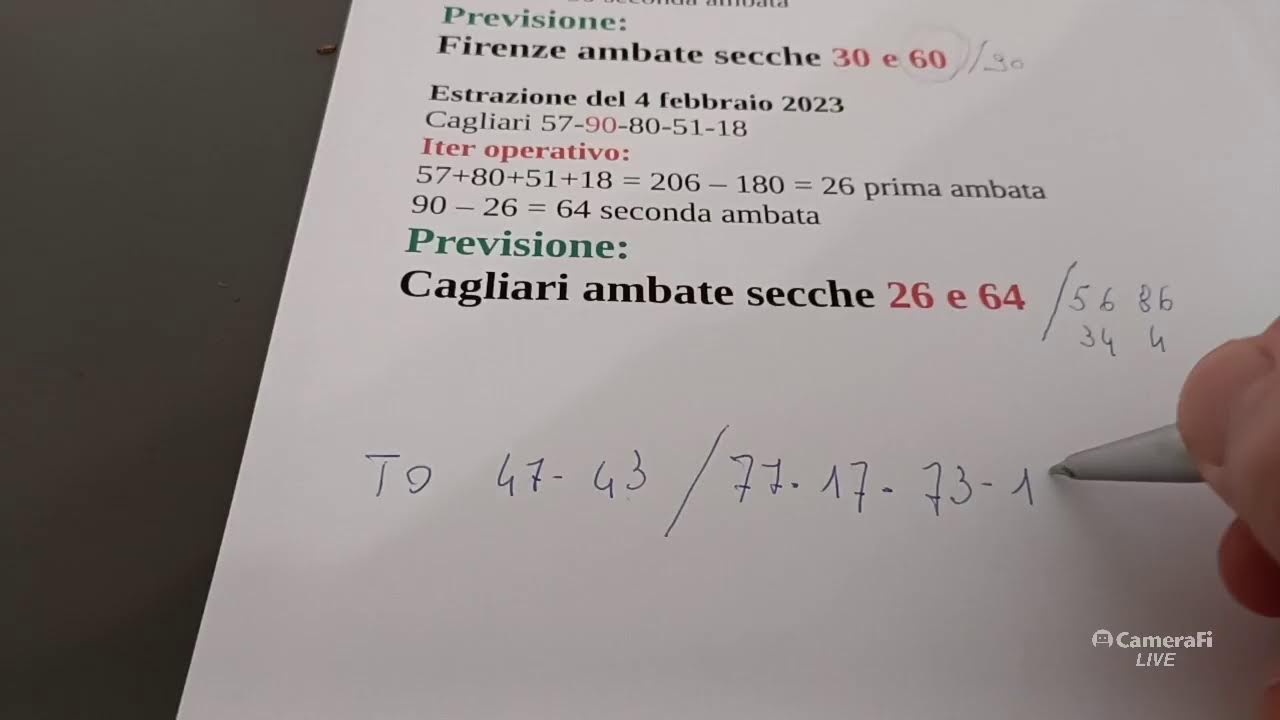 seconda ambata
Previsione:
Firenze ambate secche 30 e 60 / 90
Estrazione del 4 febbraio 2023
Cagliari 57-90-80-51-18
Iter operativo:
57+80+51+18 = 206 – 180 = 26 prima ambata
90 – 26 = 64 seconda ambata
Previsione:
Cagliari ambate secche 26 e 64 / 56 86
34 4
TO 47- 43 / 77. 17- 73 - 1
CameraFi
LIVE